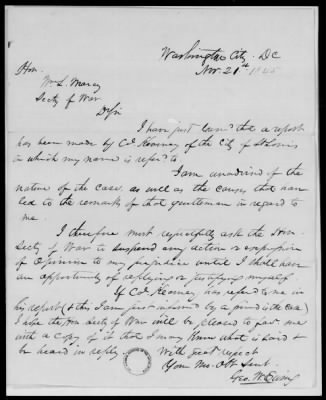 Washington City, DC
Nov. 21st 1845
Hon.
Wm L. Marcy
Secty of War
I have just learn'd that a report
has been made by Col Kearney of the City of St Louis
in which my name is refer'd to.
I am unadvised of the
nature of the case, as well as the causes that have
led to the remarks of that gentleman in regard to
me.
I therefore most respectfully ask the Hon.
Secty of War to suspend any action or expression
of opinion to my prejudice until I shall have
an opportunity of replying or justifying myself.
If Col Kearney has refer'd to me in
his report (& this I am just inform'd by a friend is the case)
I hope the Hon Secty of War will be pleased to favr me
with a copy of it that I may know what is said &
be heard in reply.
With great respect
Your Mo. Obt Servt.
Geo. W. Ewing